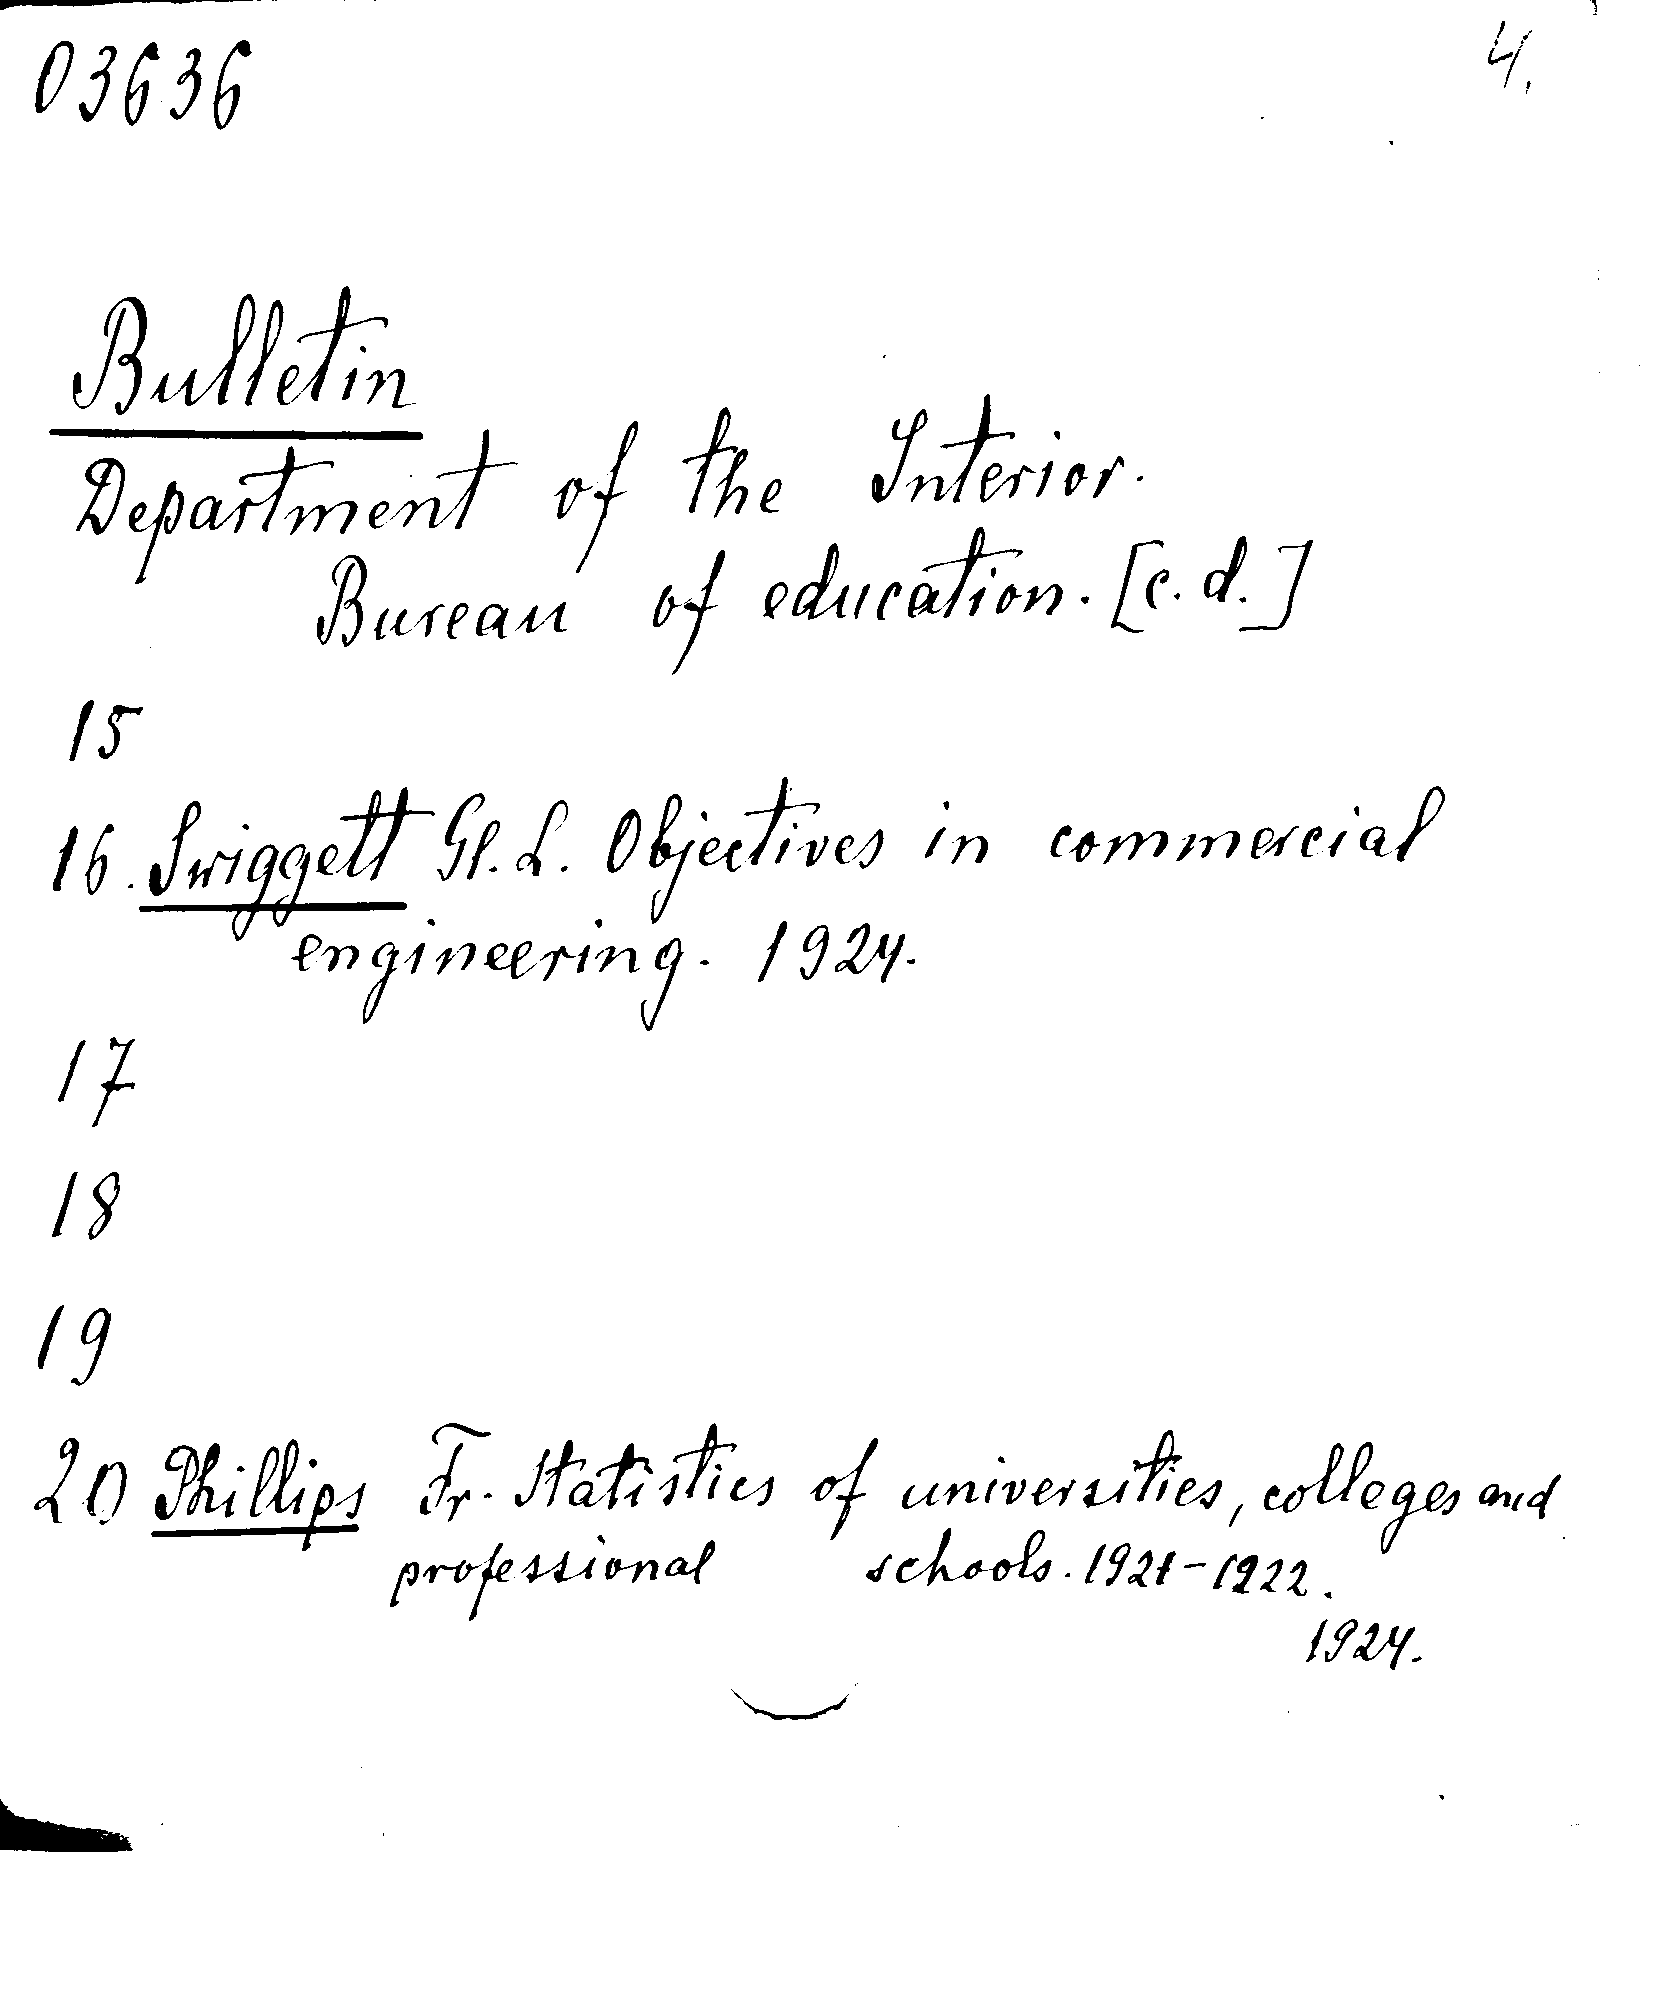 03636
4.
Bulletin
Department of the Interior.
Bureau of education. [c.d.]
15
16. Swiggett Gl. L. Objectives in commercial
engineering. 1924.
17
18
19
20 Phillips Fr. Statistics of universities, colleges and
professional schools. 1921-1922.
1924.